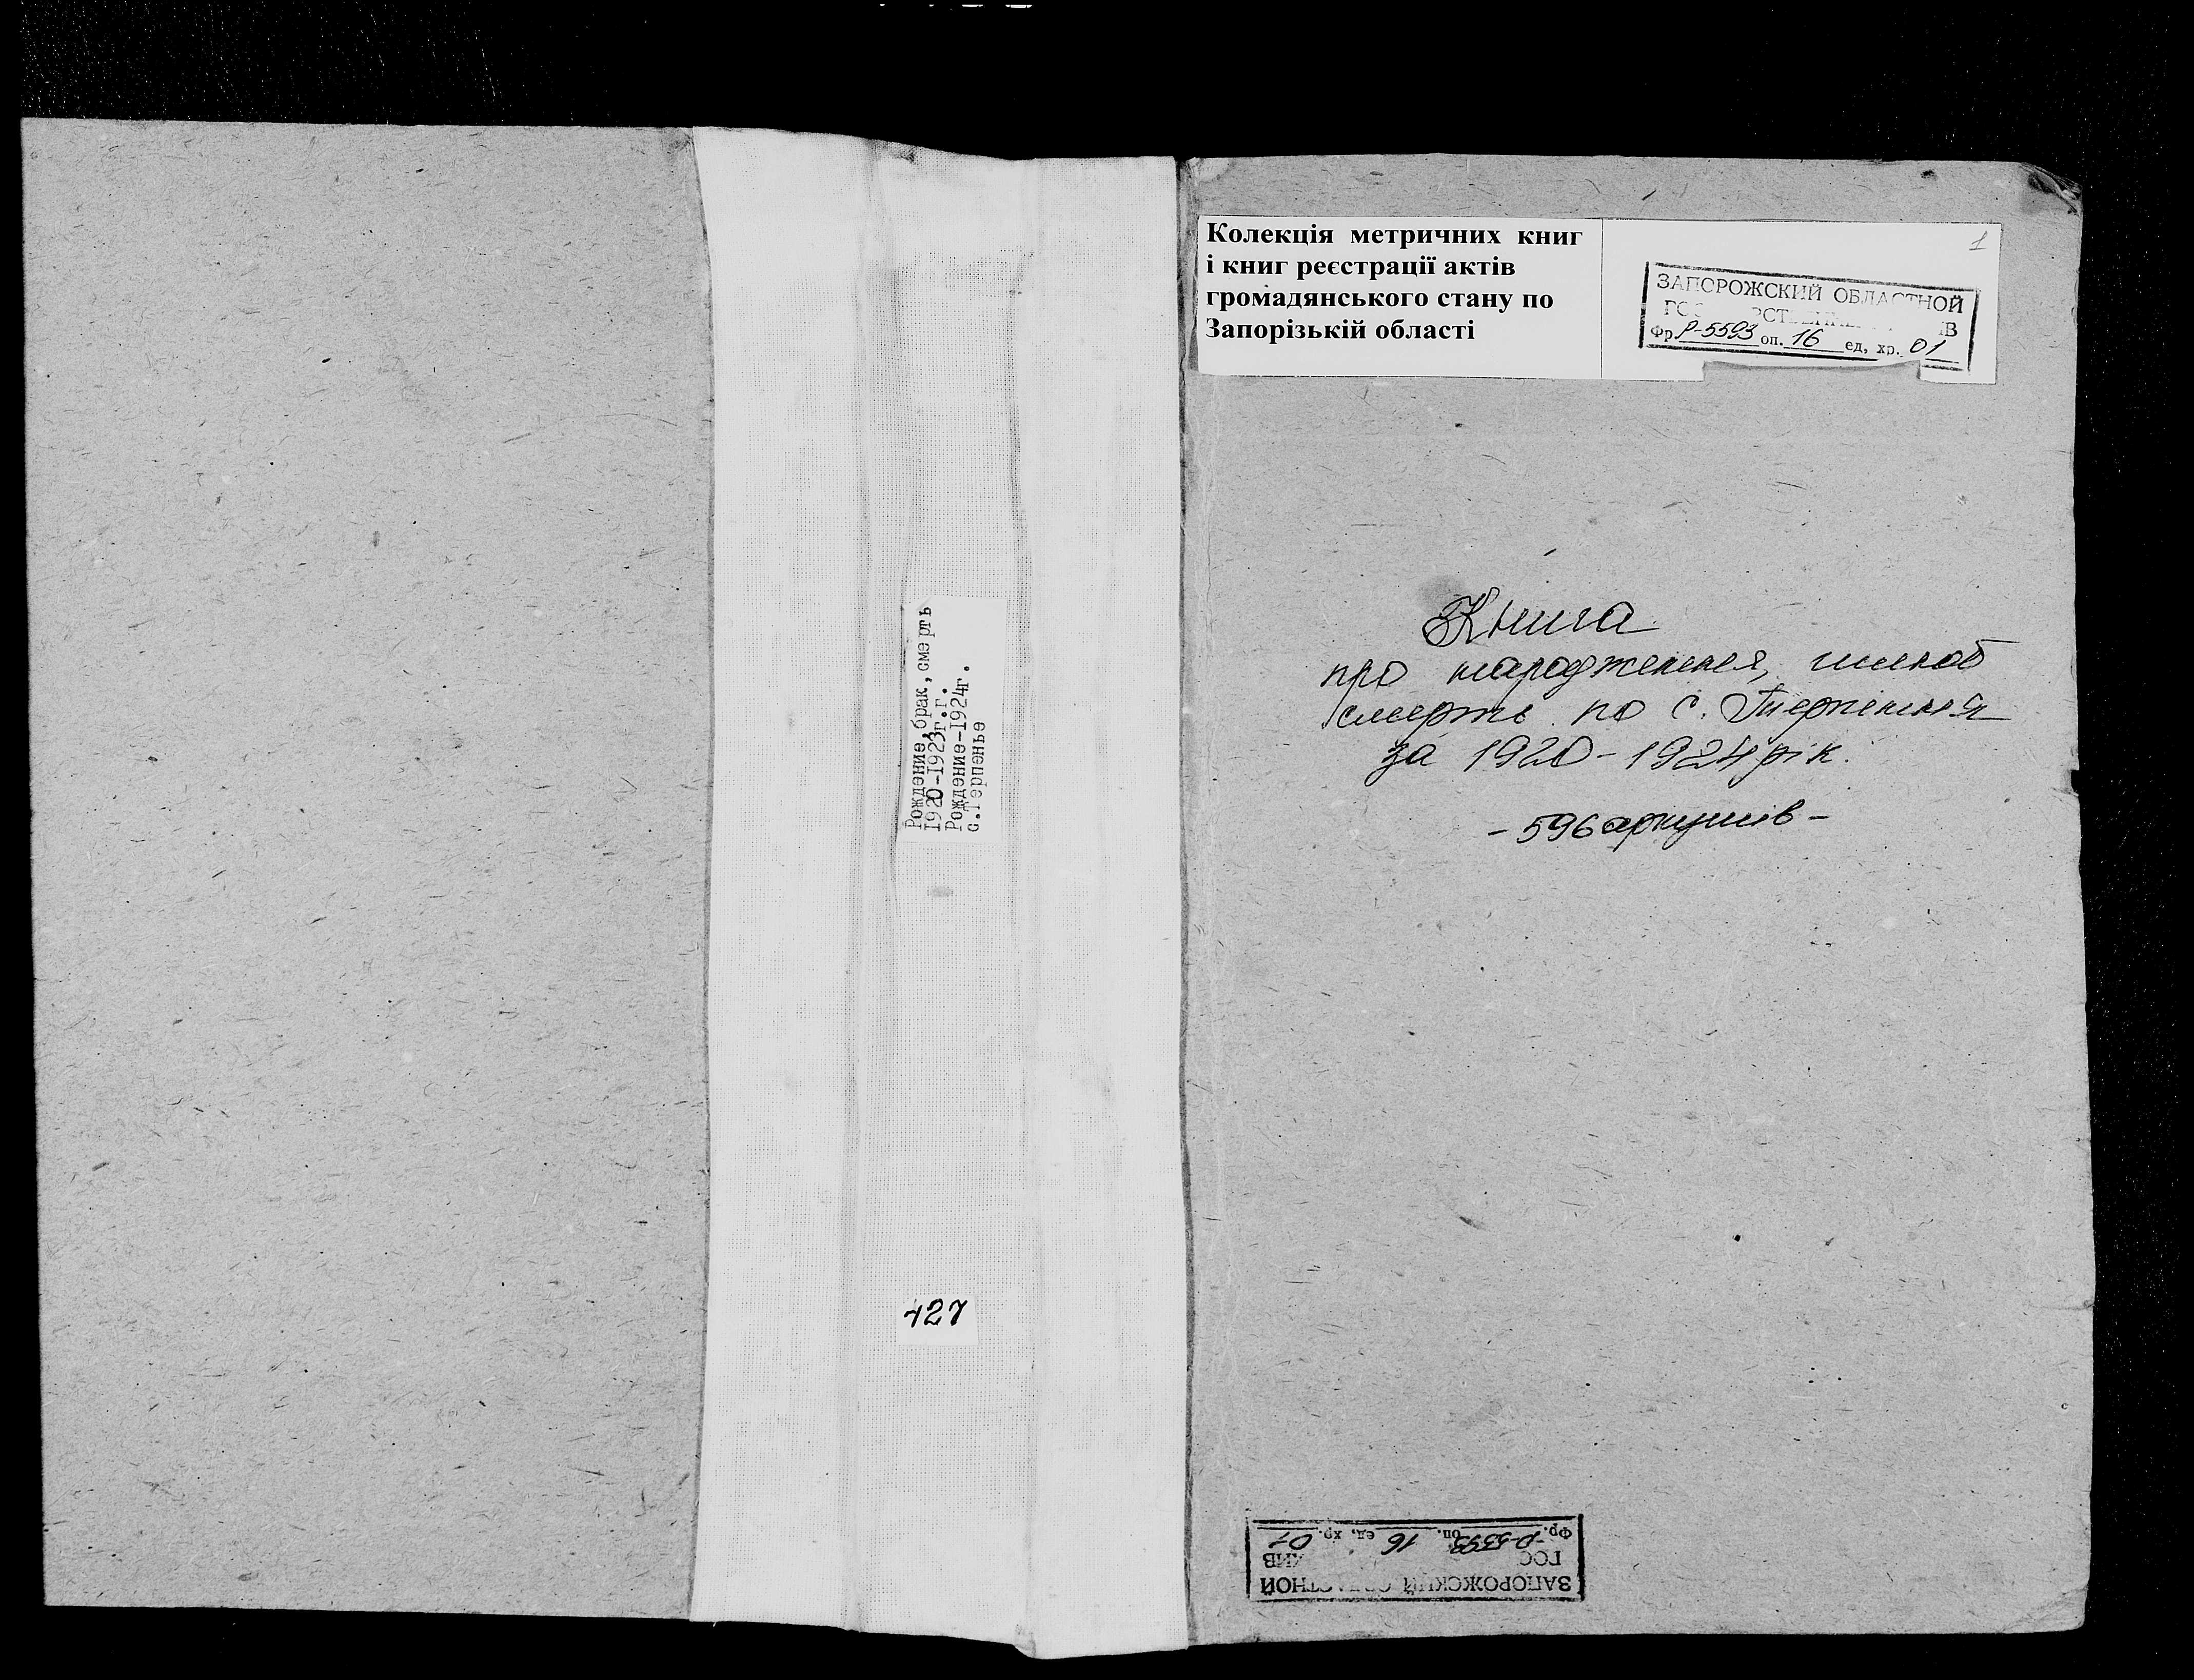 Рождение, брак, смерть
1920-1923г.г.
Рождение-1924г.
с.Терпенье
427
Колекція метричних книг
і книг реєстрації актів
громадянського стану по
Запорізькій області
1
ЗАПОРОЖСКИЙ ОБЛАСТНОЙ
Фр. Р-5593 оп. 16 ед. хр. 01
Книга
про народження, шлюб
смерть по с. Терпіння
за 1920-1924 рік.
- 596 аркушів -
ЗАПОРОЖСКИЙ ОБЛАСТНОЙ
Фр. Р-5593 оп. 16 ед. хр. 01